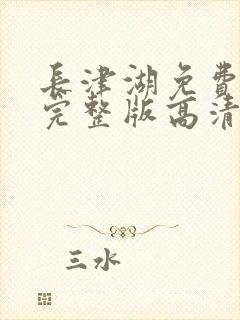 長津湖免費
完整版高清
三水